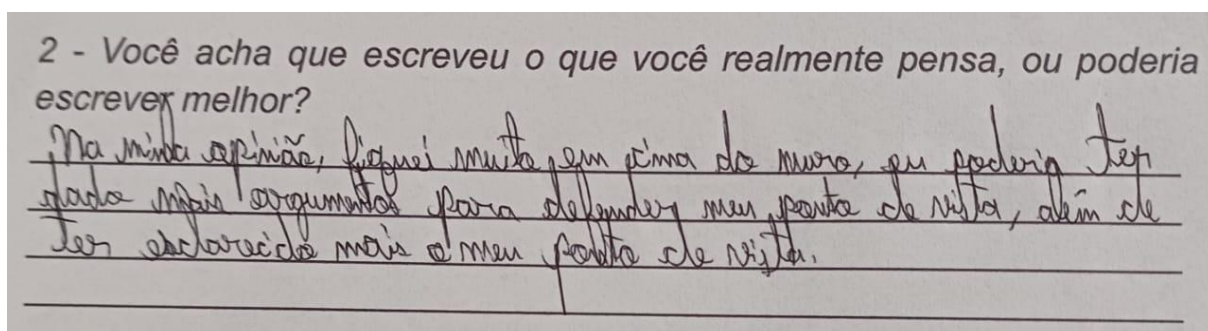 2 - Você acha que escreveu o que você realmente pensa, ou poderia
escrever melhor?
Na minha opinião, fiquei muito em cima do muro, eu poderia ter
dado mais argumentos para defender meu ponto de vista, além de
ter esclarecido mais o meu ponto de vista.